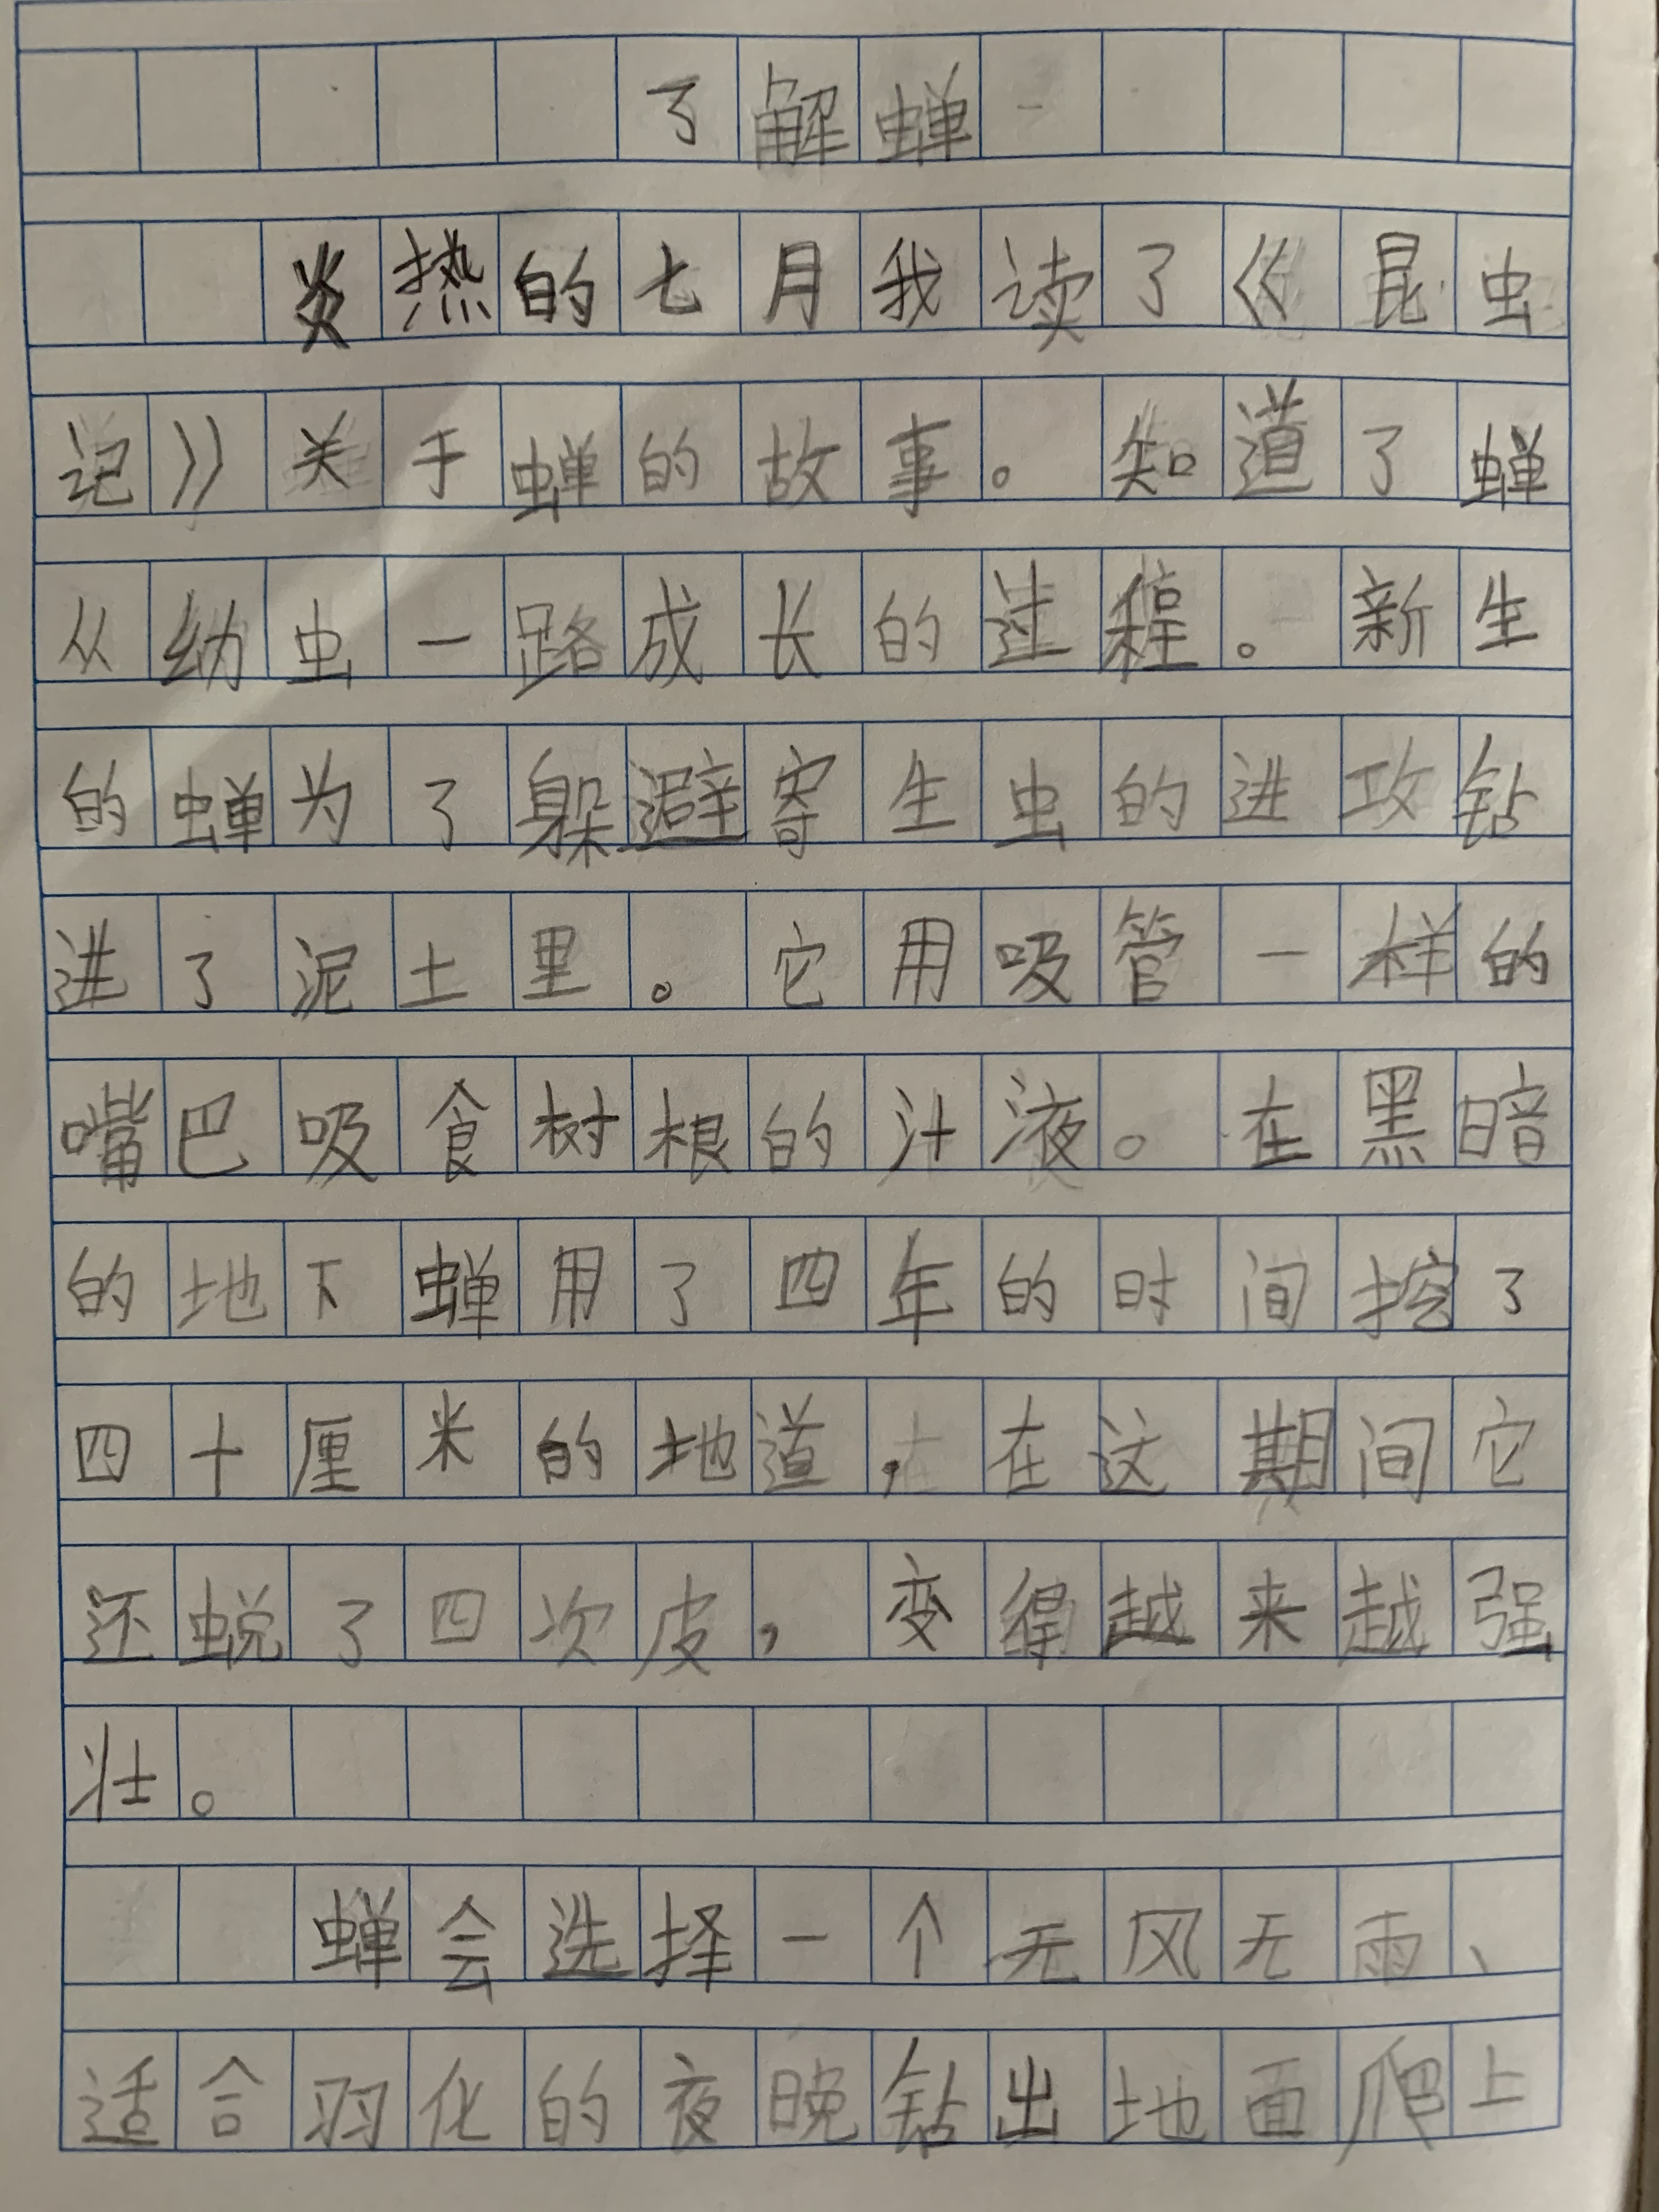 了解蝉
炎热的七月我读了《昆虫
记》关于蝉的故事。知道了蝉
从幼虫一路成长的过程。新生
的蝉为了躲避寄生虫的进攻钻
进了泥土里。它用吸管一样的
嘴巴吸食树根的汁液。在黑暗
的地下蝉用了四年的时间挖了
四十厘米的地道,在这期间它
还蜕了四次皮,变得越来越强
壮。
蝉会选择一个无风无雨、
适合羽化的夜晚钻出地面爬上